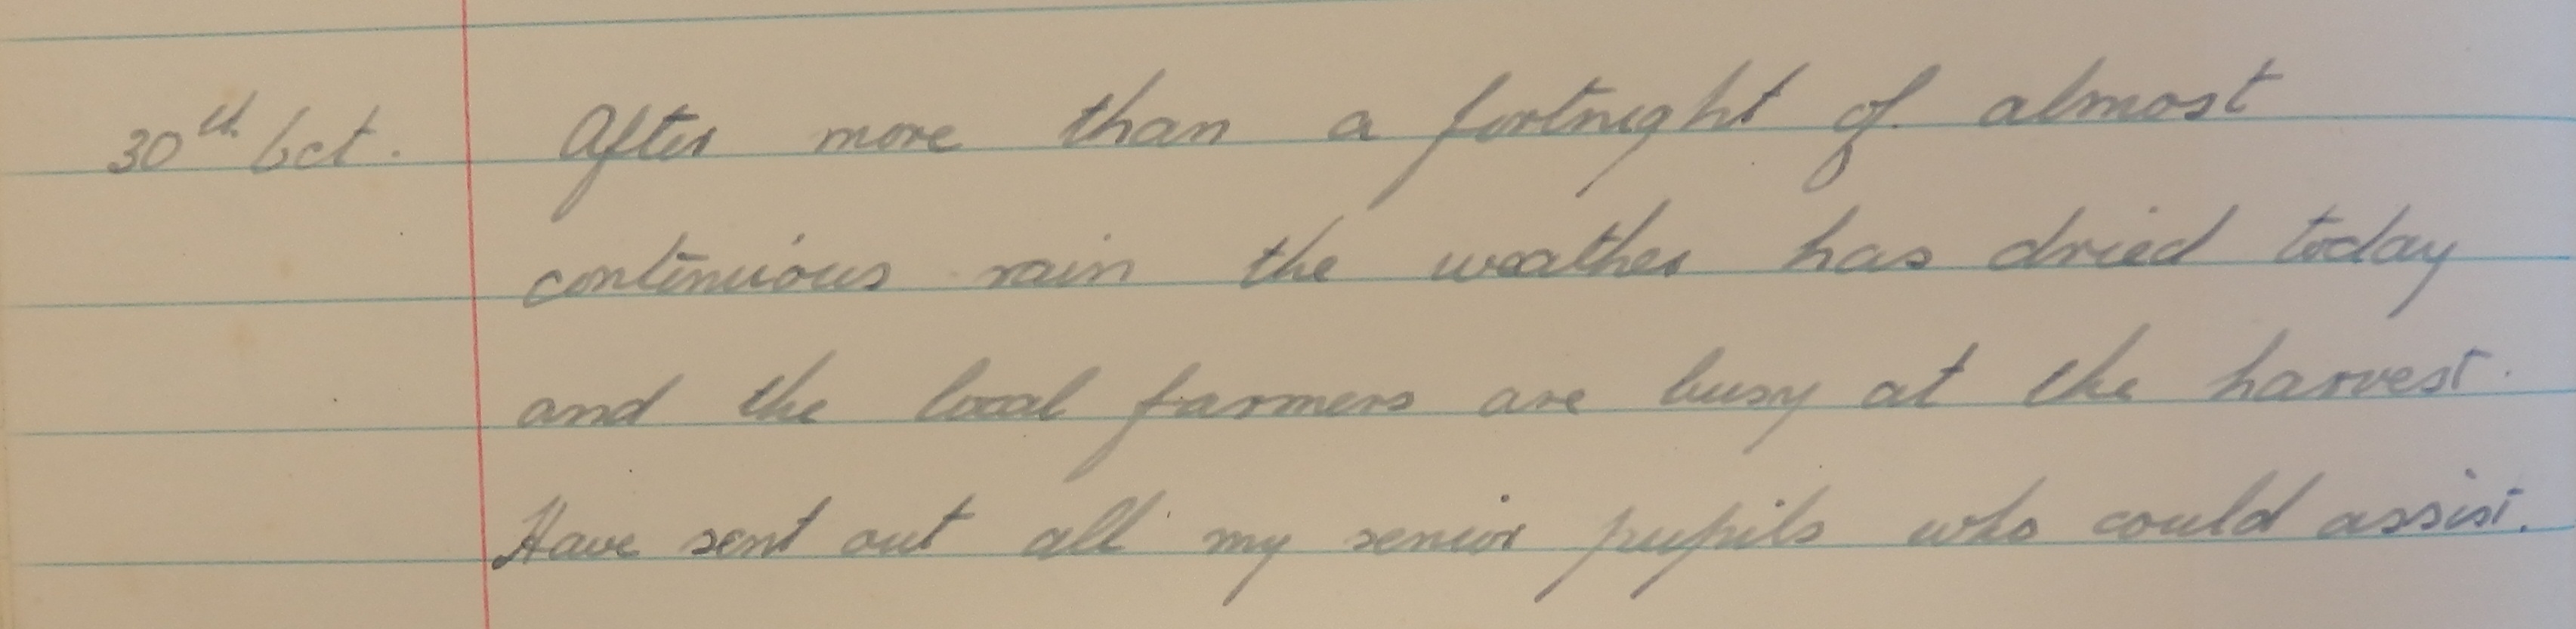 30th Oct. After more than a fortnight of almost
continuious rain the weather has dried today
and the local farmers are busy at the harvest.
Have sent out all my senior pupils who could assist.